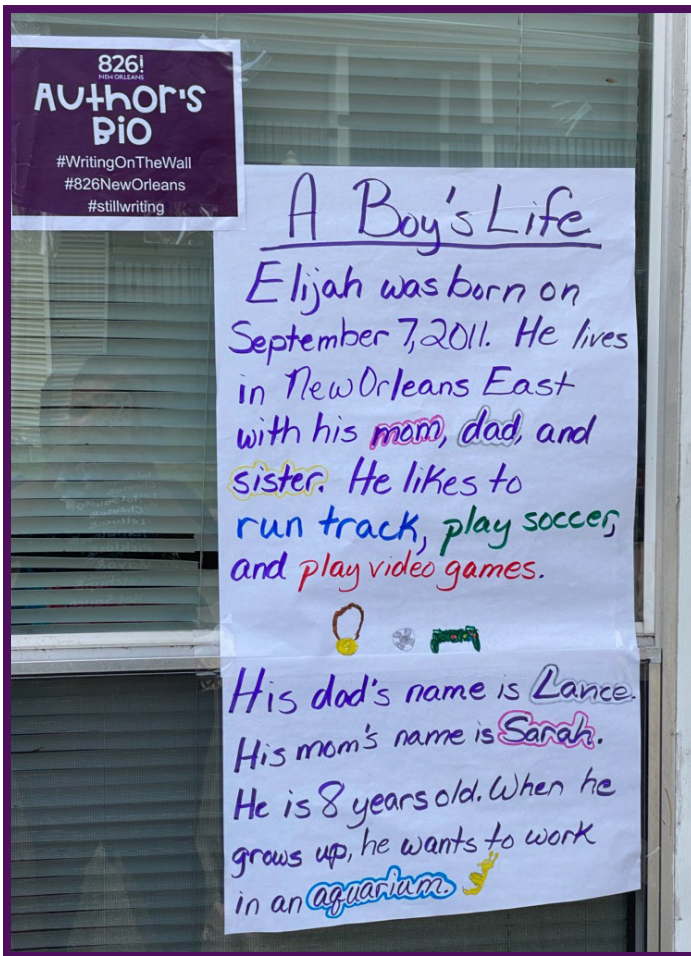 826!
NEW ORLEANS
AUTHOR'S
BIO
#WritingOnTheWall
#826NewOrleans
#stillwriting
A Boy's Life
Elijah was born on
September 7, 2011. He lives
in New Orleans East
with his mom, dad, and
sister. He likes to
run track, play soccer,
and play video games.
His dad's name is Lance.
His mom's name is Sarah.
He is 8 years old. When he
grows up, he wants to work
in an aquarium.